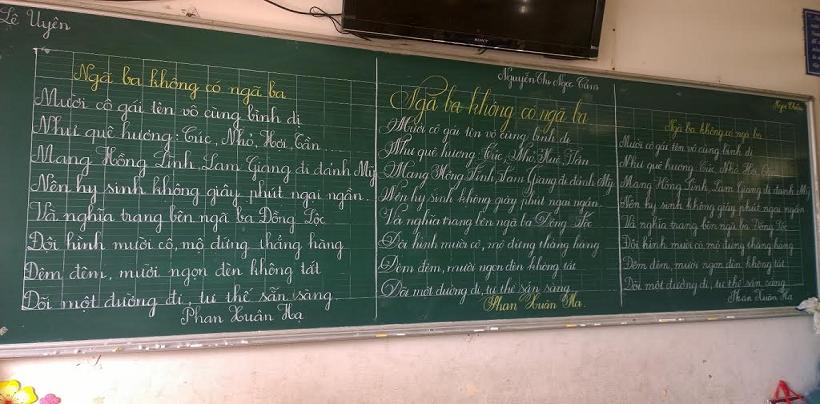 Lê Uyên
Ngã ba không có ngã ba
Mười cô gái tên vô cùng bình dị
Như quê hương: Cúc, Nhỏ, Hợi, Cần...
Mang Hồng Lĩnh, Lam Giang đi đánh Mỹ
Nên hy sinh không giây phút ngại ngần.
Và nghĩa trang bên ngã ba Đồng Lộc
Đội hình mười cô, mộ đứng thẳng hàng
Đêm đêm, mười ngọn đèn không tắt
Dõi một đường đi, tư thế sẵn sàng.
Phan Xuân Hạ
SONY
Nguyễn Thị Ngọc Tâm
Ngã ba không có ngã ba
Mười cô gái tên vô cùng bình dị
Như quê hương Cúc, Nhỏ,
Mang Hồng Lĩnh, Lam Giang đi đánh Mỹ
Nên hy sinh không giây phút ngại ngần
Và nghĩa trang bên ngã ba Đồng Lộc
Đội hình mười cô, mộ đứng thẳng hàng
Đêm đêm, mười ngọn đèn không tắt
Dõi một đường đi, tư thế sẵn sàng
Phan Xuân Hạ.
Ngã ba không có ngã ba
Mười cô gái tên vô cùng bình dị
Như quê hương Cúc, Nhỏ, Hợi, Cần
Mang Hồng Lĩnh, Lam Giang đi đánh Mỹ
Nên hy sinh không giây phút ngại ngần
Và nghĩa trang bên ngã ba Đồng Lộc
Đội hình mười cô, mộ đứng thẳng hàng
Đêm đêm, mười ngọn đèn không tắt
Dõi một đường đi, tư thế sẵn sàng
Phan Xuân Hạ